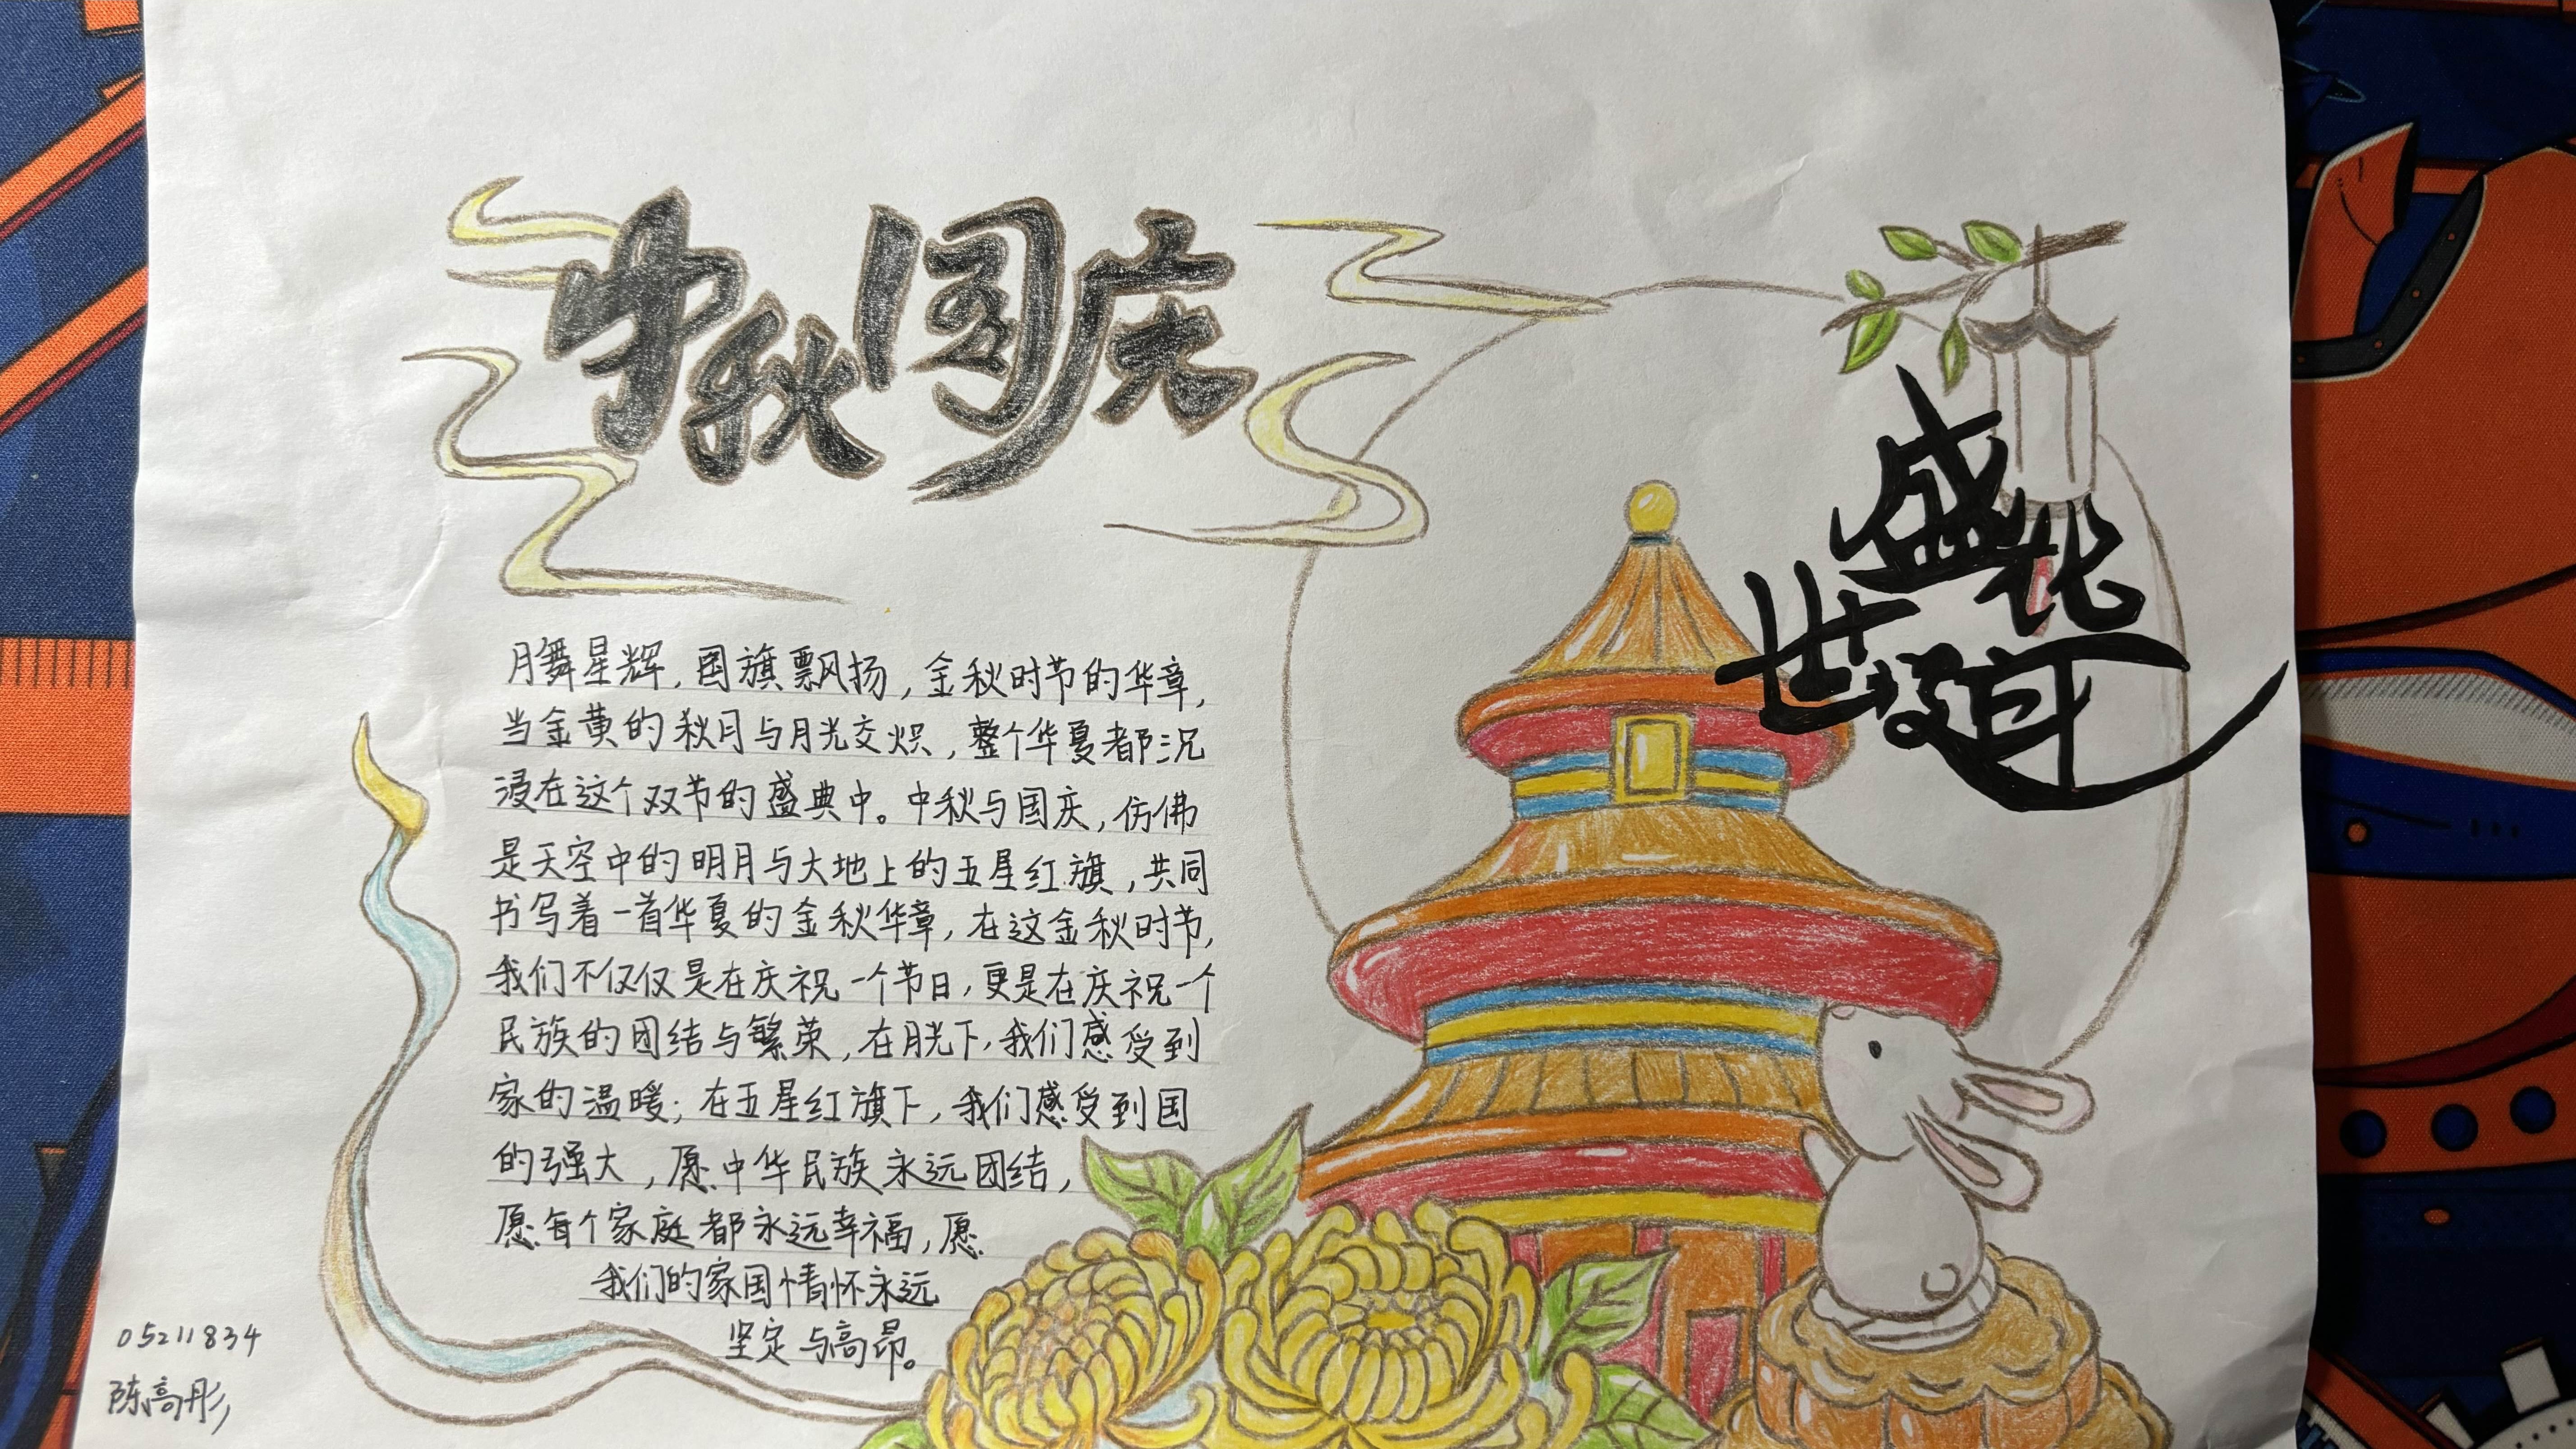 中秋国庆
盛世华
月舞星辉,国旗飘扬,金秋时节的华章,
当金黄的秋月与月光交炽,整个华夏都沉
浸在这个双节的盛典中。中秋与国庆,仿佛
是天空中的明月与大地上的五星红旗,共同
书写着一首华夏的金秋华章,在这金秋时节,
我们不仅仅是在庆祝一个节日,更是在庆祝一个
民族的团结与繁荣,在月光下,我们感受到
家的温暖;在五星红旗下,我们感受到国
的强大,愿中华民族永远团结,
愿每个家庭都永远幸福,愿
我们的家国情怀永远
坚定与高昂。
05211834
陈高彤